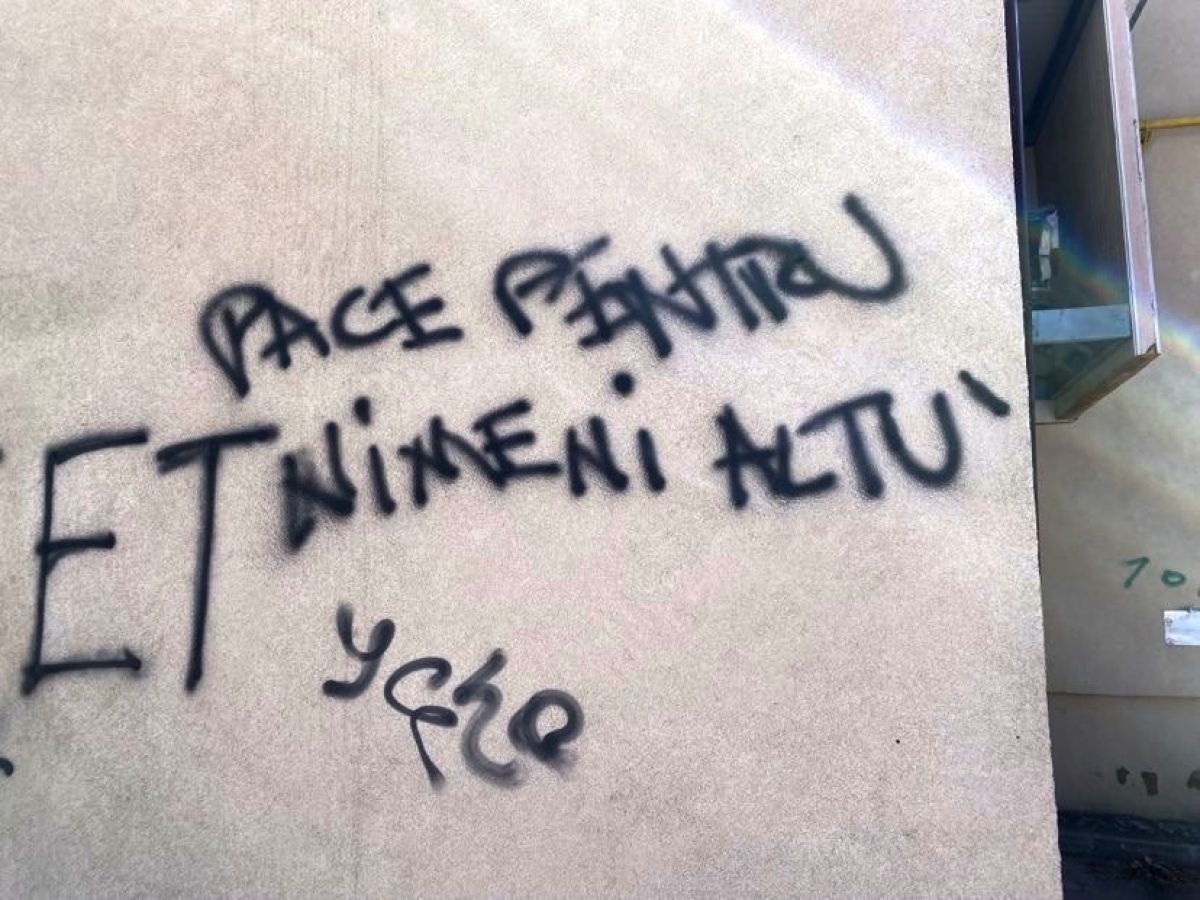 PACE PENTRU
NIMENI ALTU'
ET
10